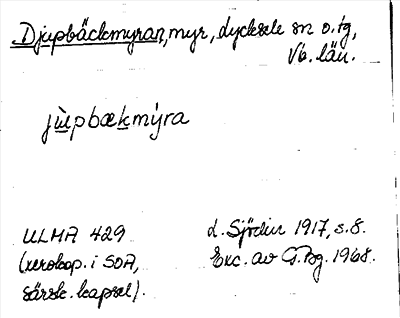 Djupbäckmyran, myr, dycksele sn o. tg,
Vb. län.
jùpbækmýra
ULMA 429
(xerokop. i SOA,
särsk. kapsel).
d. Sjödin 1917, s. 8.
Exc. av G. Pg. 1968.